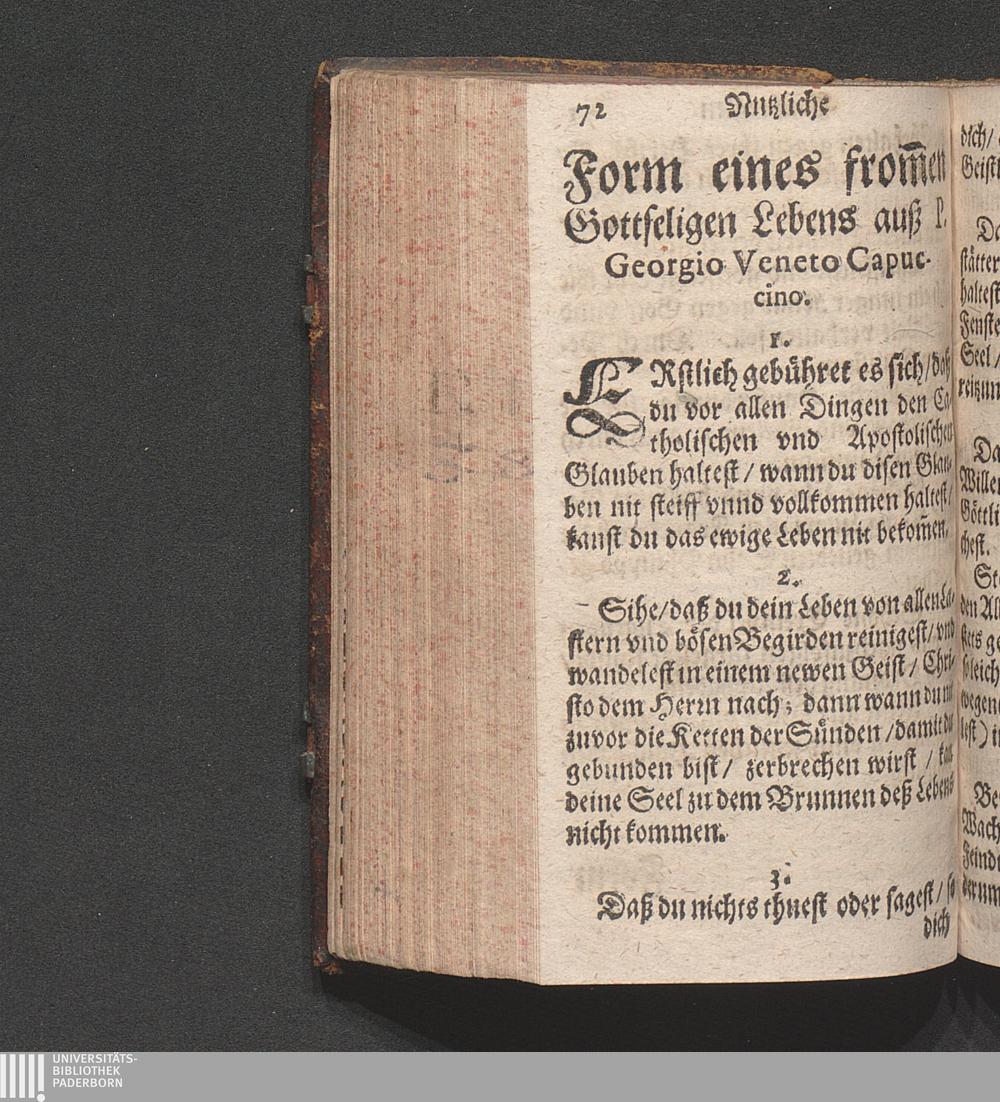 72 Nutzliche
Form eines from̅en
Gottseligen Lebens auß P.
Georgio Veneto Capuc-
cino.
1.
ERstlich gebühret es sich / daß
du vor allen Dingen den Ca-
tholischen vnd Apostolischen
Glauben haltest / wann du disen Glau-
ben nit steiff vnnd vollkommen haltest /
kanst du das ewige Leben nit bekom̅en.
2.
Sihe / daß du dein Leben von allen La-
stern vnd bösen Begirden reinigest / vnd
wandelest in einem newen Geist / Chri-
sto dem Herrn nach; dann wann du nit
zuvor die Ketten der Sünden / damit du
gebunden bist / zerbrechen wirst / kan
deine Seel zu dem Brunnen deß Lebens
nicht kommen.
3.
Daß du nichts thuest oder sagest / so
dich
dich /
Da
stätter
haltest
Fenste
Seel /
reitzun
Da
Willen
Göttli
chest.
den Al
stets ge
wegen
lest) i
Be
Wach
Feind
derum
UNIVERSITÄTS-
BIBLIOTHEK
PADERBORN